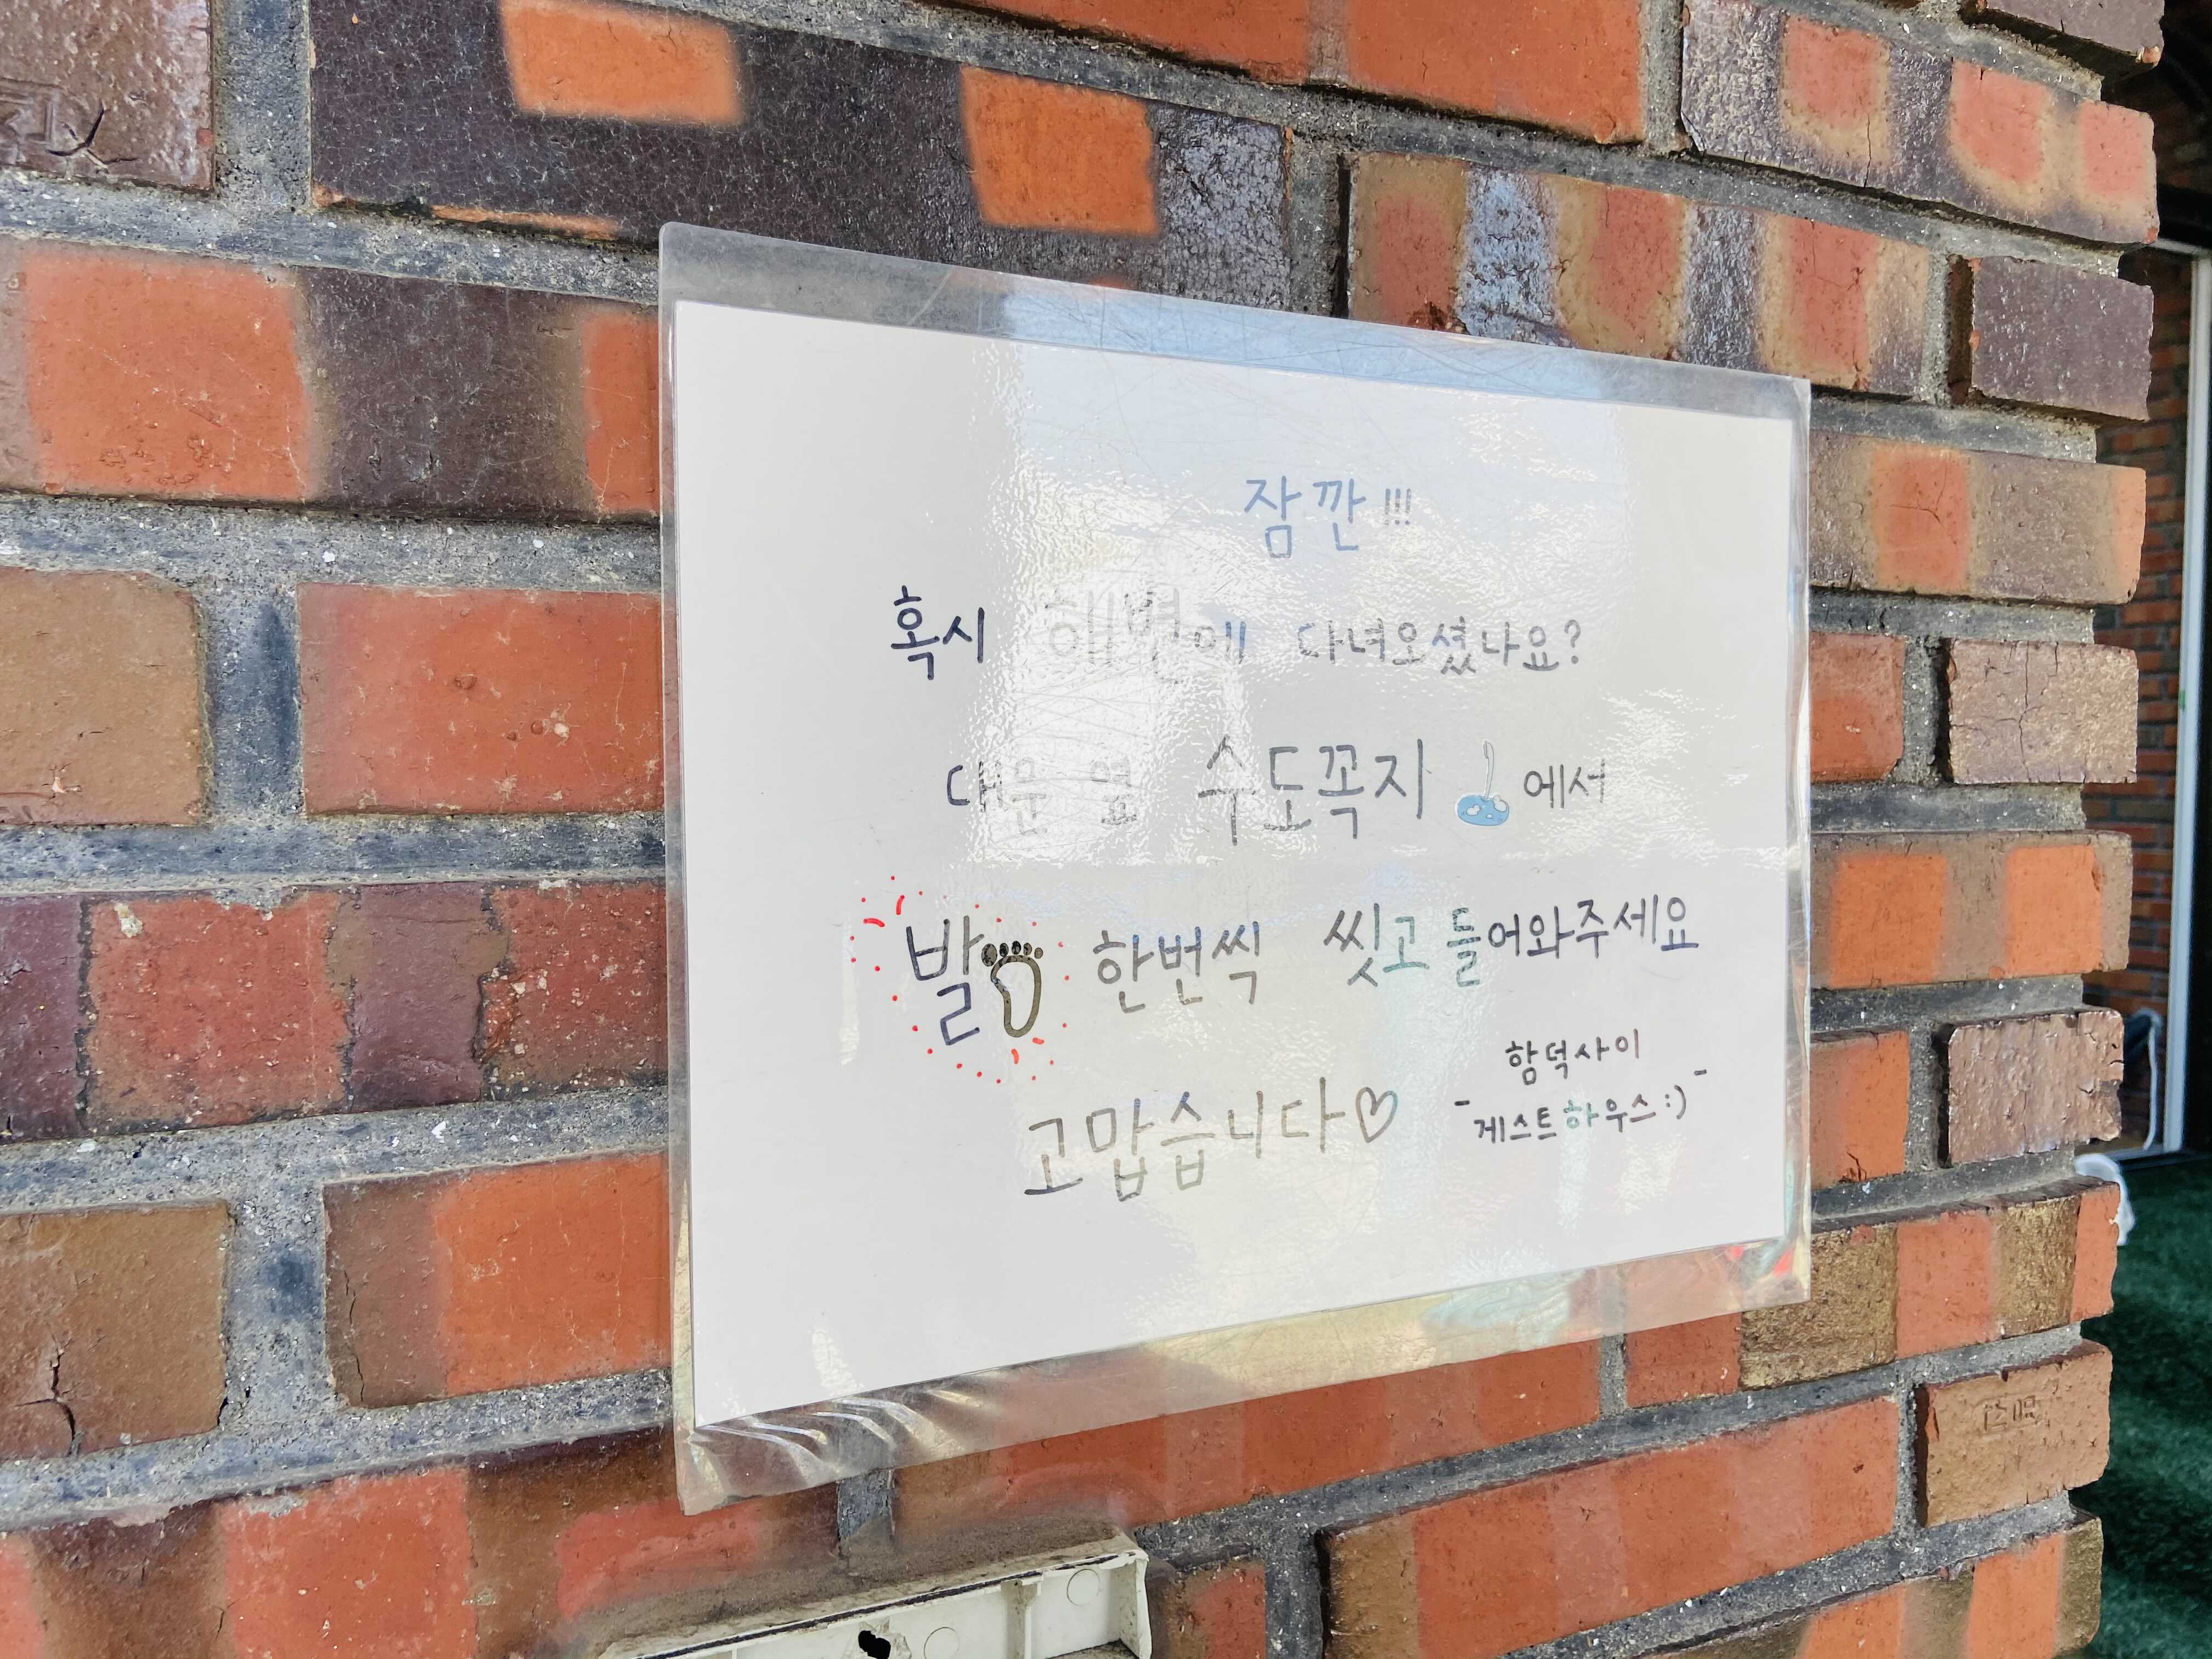 잠깐!!!
혹시 해변에 다녀오셨나요?
대문 옆 수도꼭지 에서
발 한번씩 씻고 들어와주세요
고맙습니다♡
함덕사이
-게스트하우스:)-